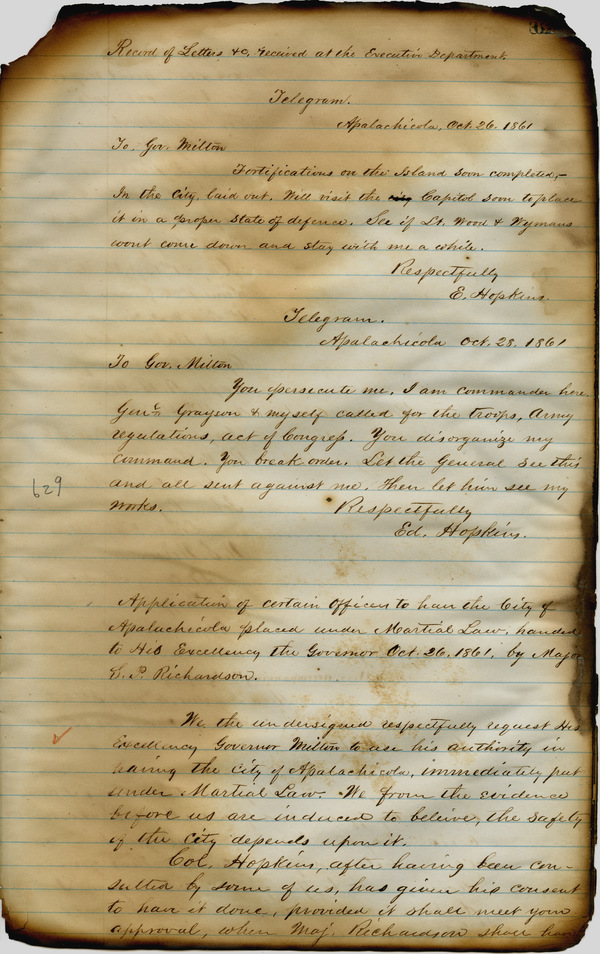 Record of Letters &c, received at the Executive Department.
Telegram.
Apalachicola, Oct. 26. 1861
To. Gov. Milton
Fortifications on the Island soon completed,-
In the City, laid out. Will visit the city Capitol soon to place
it in a proper state of defence. See if Lt. Wood & Wymans
wont come down and stay with me a while.
Respectfully
E. Hopkins.
Telegram.
Apalachicola Oct. 28. 1861
To Gov. Milton
You persecute me. I am commander here.
Genr Grayson & myself called for the troops, Army
regulations, act of Congress. You disorganize my
command. You break order. Let the General see this
and all sent against me. Then let him see my
works. Respectfully
Ed. Hopkins.
629
Application of certain Officers to have the City of
Apalachicola placed under Martial Law, handed
to His Excellency the Governor Oct. 26. 1861. by Major
S. P. Richardson.
We the undersigned respectfully request His
Excellency Governor Milton to use his authority in
having the City of Apalachicola, immediately put
under Martial Law. We from the evidence
before us are induced to beleive, the safety
of the City depends upon it.
Col. Hopkins, after having been con-
sulted by some of us, has given his consent
to have it done, provided it shall meet your
approval, when Maj. Richardson shall have